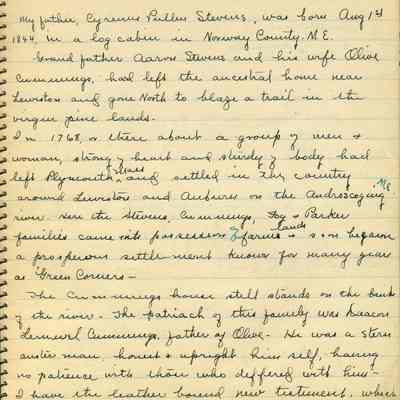 My father, Cyrenus Pullen Stevens, was born Aug 14
1844, in a log cabin in Norway County. M.E.
Grand father Aaron Stevens and his wife Olive
Cummings, had left the ancestral home near
Lewiston and gone North to blaze a trail in the
virgin pine lands.
In 1768, or there about a group of men +
woman, strong of heart and sturdy of body had
left Plymouth Mass and settled in the country
around Lewiston and Auburn on the Androscoging M.E
river. Here the Stevens, Cummings, & Parker
families came into possession of farm lands & soon became
a prosperous settlement known for many years
as Green Corners —
The Cummings house still stands on the bank
of the river. The patriach of this family was Deacon
Lemuel Cummings, father of Olive. He was a stern
austere man, honest & upright him self, having
no patience with those who differed with him —
I have the leather bound new testiment, which